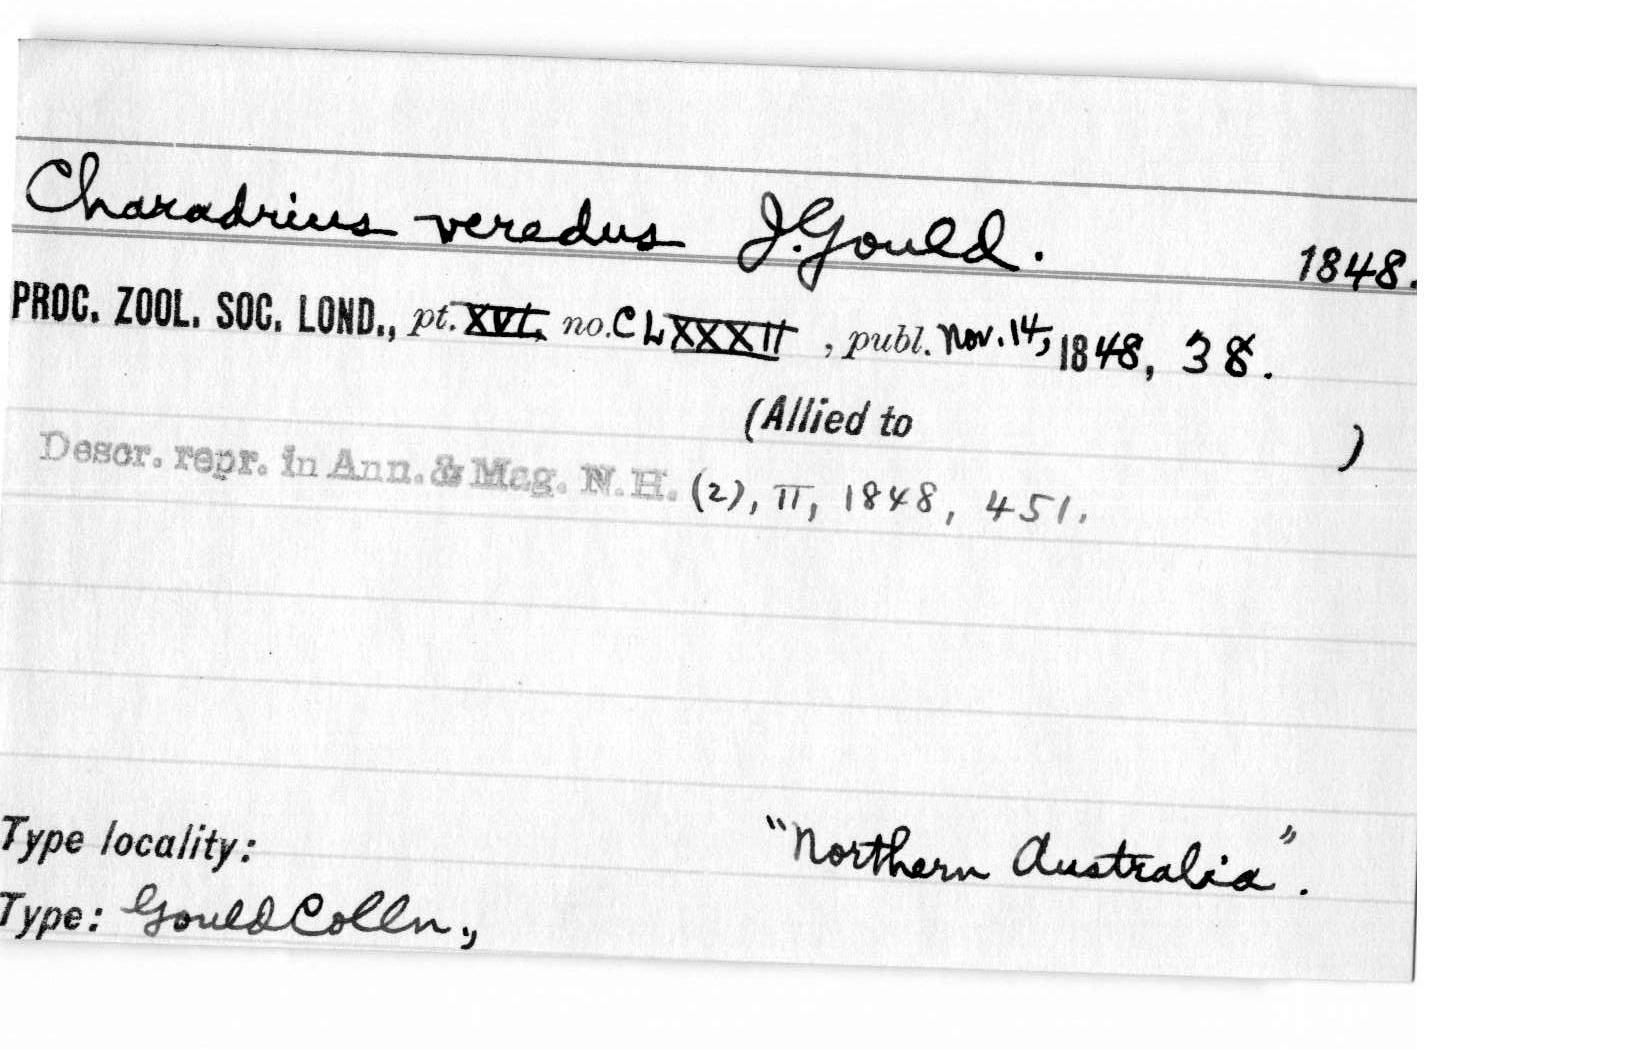 Charadrius veredus J. Gould. 1848.
PROC. ZOOL. SOC. LOND., pt. XVI, no. CLXXXII, publ. Nov. 14, 1848, 38.
(Allied to )
Descr. repr. in Ann. & Mag. N.H. (2), II, 1848, 451.
Type locality: "Northern Australia".
Type: Gould Colln.,